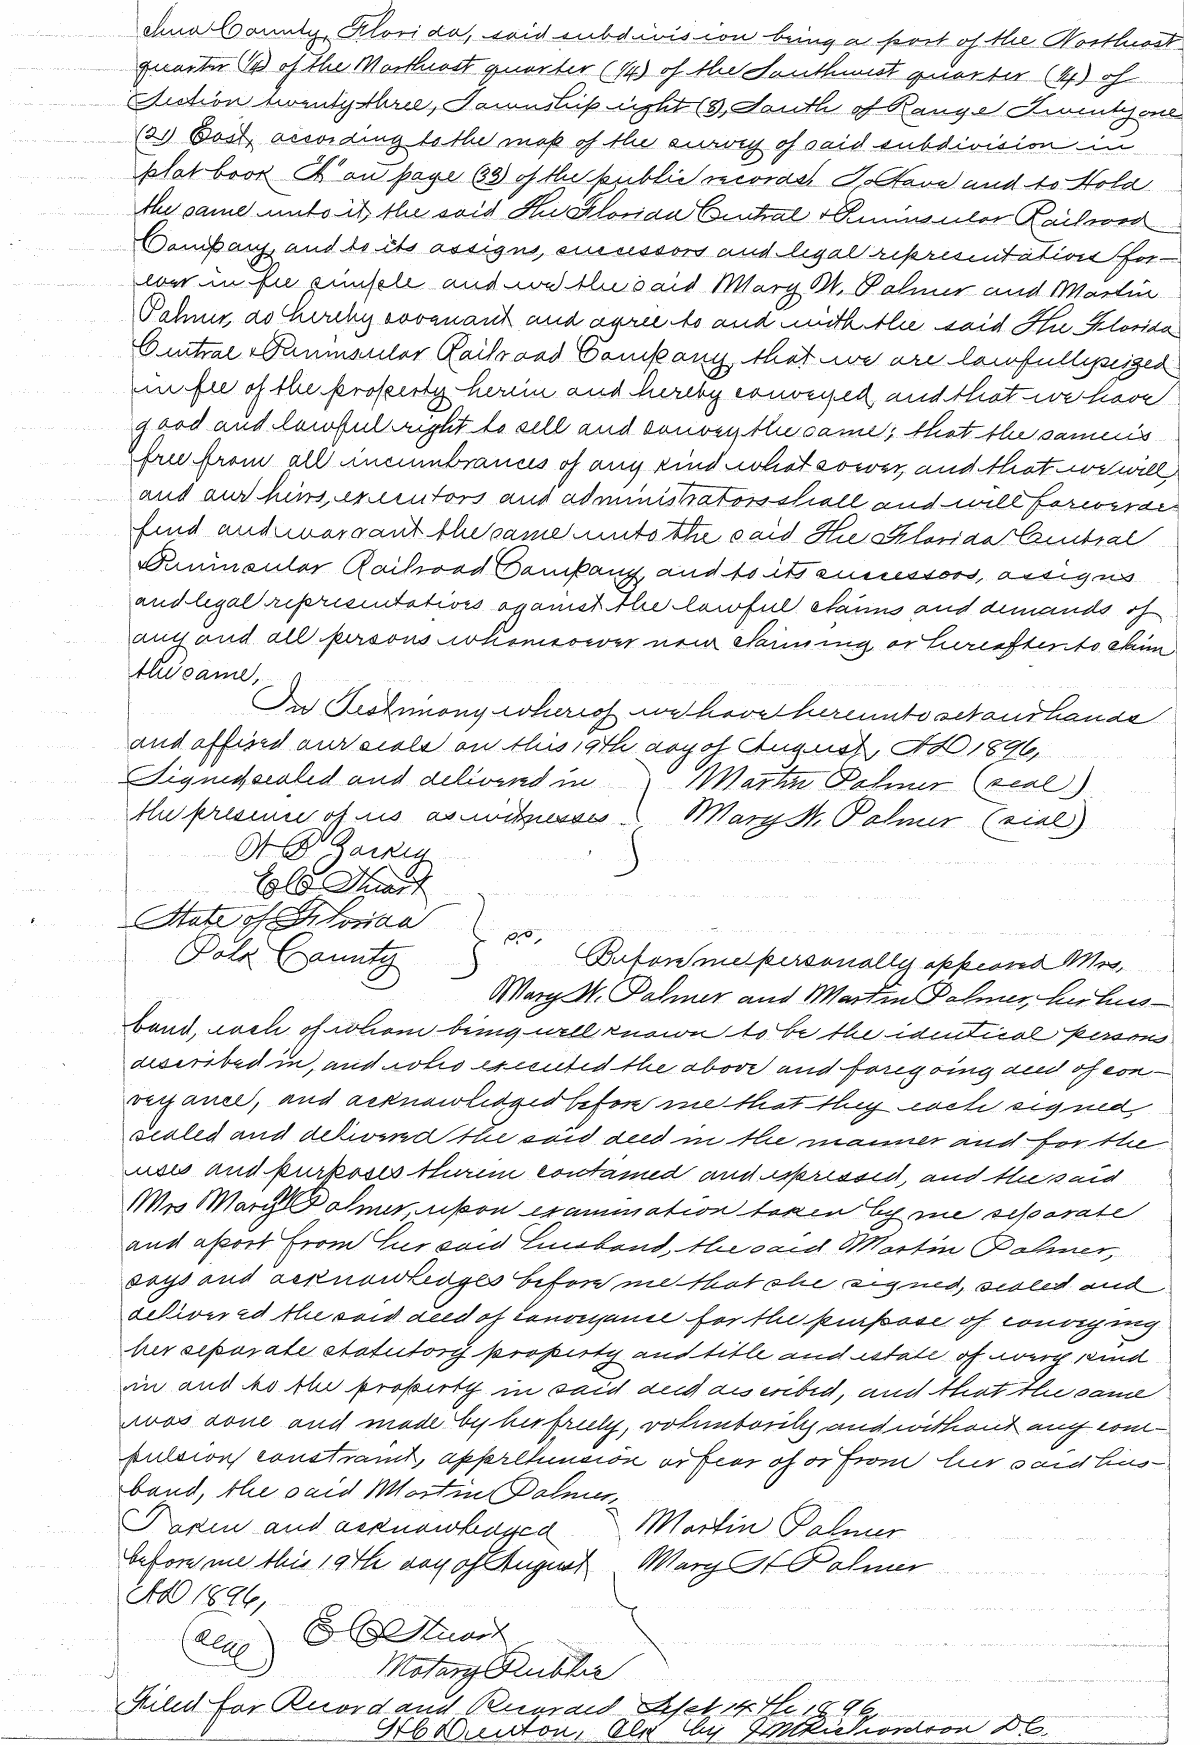 chua County, Florida, said subdivision being a part of the Northeast
quarter (1/4) of the Northeast quarter (1/4) of the Southwest quarter (1/4) of
Section twenty three, Township eight (8), South of Range Twenty one
(21) East, according to the map of the survey of said subdivision in
plat book "A" on page (33) of the public records. To Have and to Hold
the same unto it, the said The Florida Central & Peninsular Railroad
Company, and to its assigns, successors and legal representatives for-
ever in fee simple and we the said Mary W. Palmer and Martin
Palmer, do hereby covenant and agree to and with the said The Florida
Central & Peninsular Railroad Company, that we are lawfully seized
in fee of the property herein and hereby conveyed, and that we have
good and lawful right to sell and convey the same; that the same is
free from all incumbrances of any kind whatsoever, and that we will,
and our heirs, executors and administrators shall and will forever de-
fend and warrant the same unto the said The Florida Central
& Peninsular Railroad Company, and to its successors, assigns
and legal representatives against the lawful claims and demands of
any and all persons whomsoever now claiming or hereafter to claim
the same,
In Testimony whereof we have hereunto set our hands
and affixed our seals on this 19th day of August, AD 1896,
Signed, sealed and delivered in } Martin Palmer (seal)
the presence of us as witnesses } Mary W. Palmer (seal)
E C Stuart
State of Florida }
Polk County } ss,
Before me personally appeared Mrs,
Mary W. Palmer and Martin Palmer, her hus-
band, each of whom being well known to be the identical persons
described in, and who executed the above and foregoing deed of con-
veyance, and acknowledged before me that they each signed,
sealed and delivered the said deed in the manner and for the
uses and purposes therein contained and expressed, and the said
Mrs Mary W Palmer, upon examination taken by me separate
and apart from her said husband, the said Martin Palmer,
says and acknowledges before me that she signed, sealed and
delivered the said deed of conveyance for the purpose of conveying
her separate statutory property and title and estate of every kind
in and to the property in said deed described, and that the same
was done and made by her freely, voluntarily and without any com-
pulsion, constraint, apprehension or fear of or from her said hus-
band, the said Martin Palmer,
Taken and acknowledged } Martin Palmer
before me this 19th day of August } Mary H Palmer
AD 1896,
(seal) E C Stuart
Notary Public
Filed for Record and Recorded Sept 14th 1896,
H C Denton, Clk by Richardson D.C.